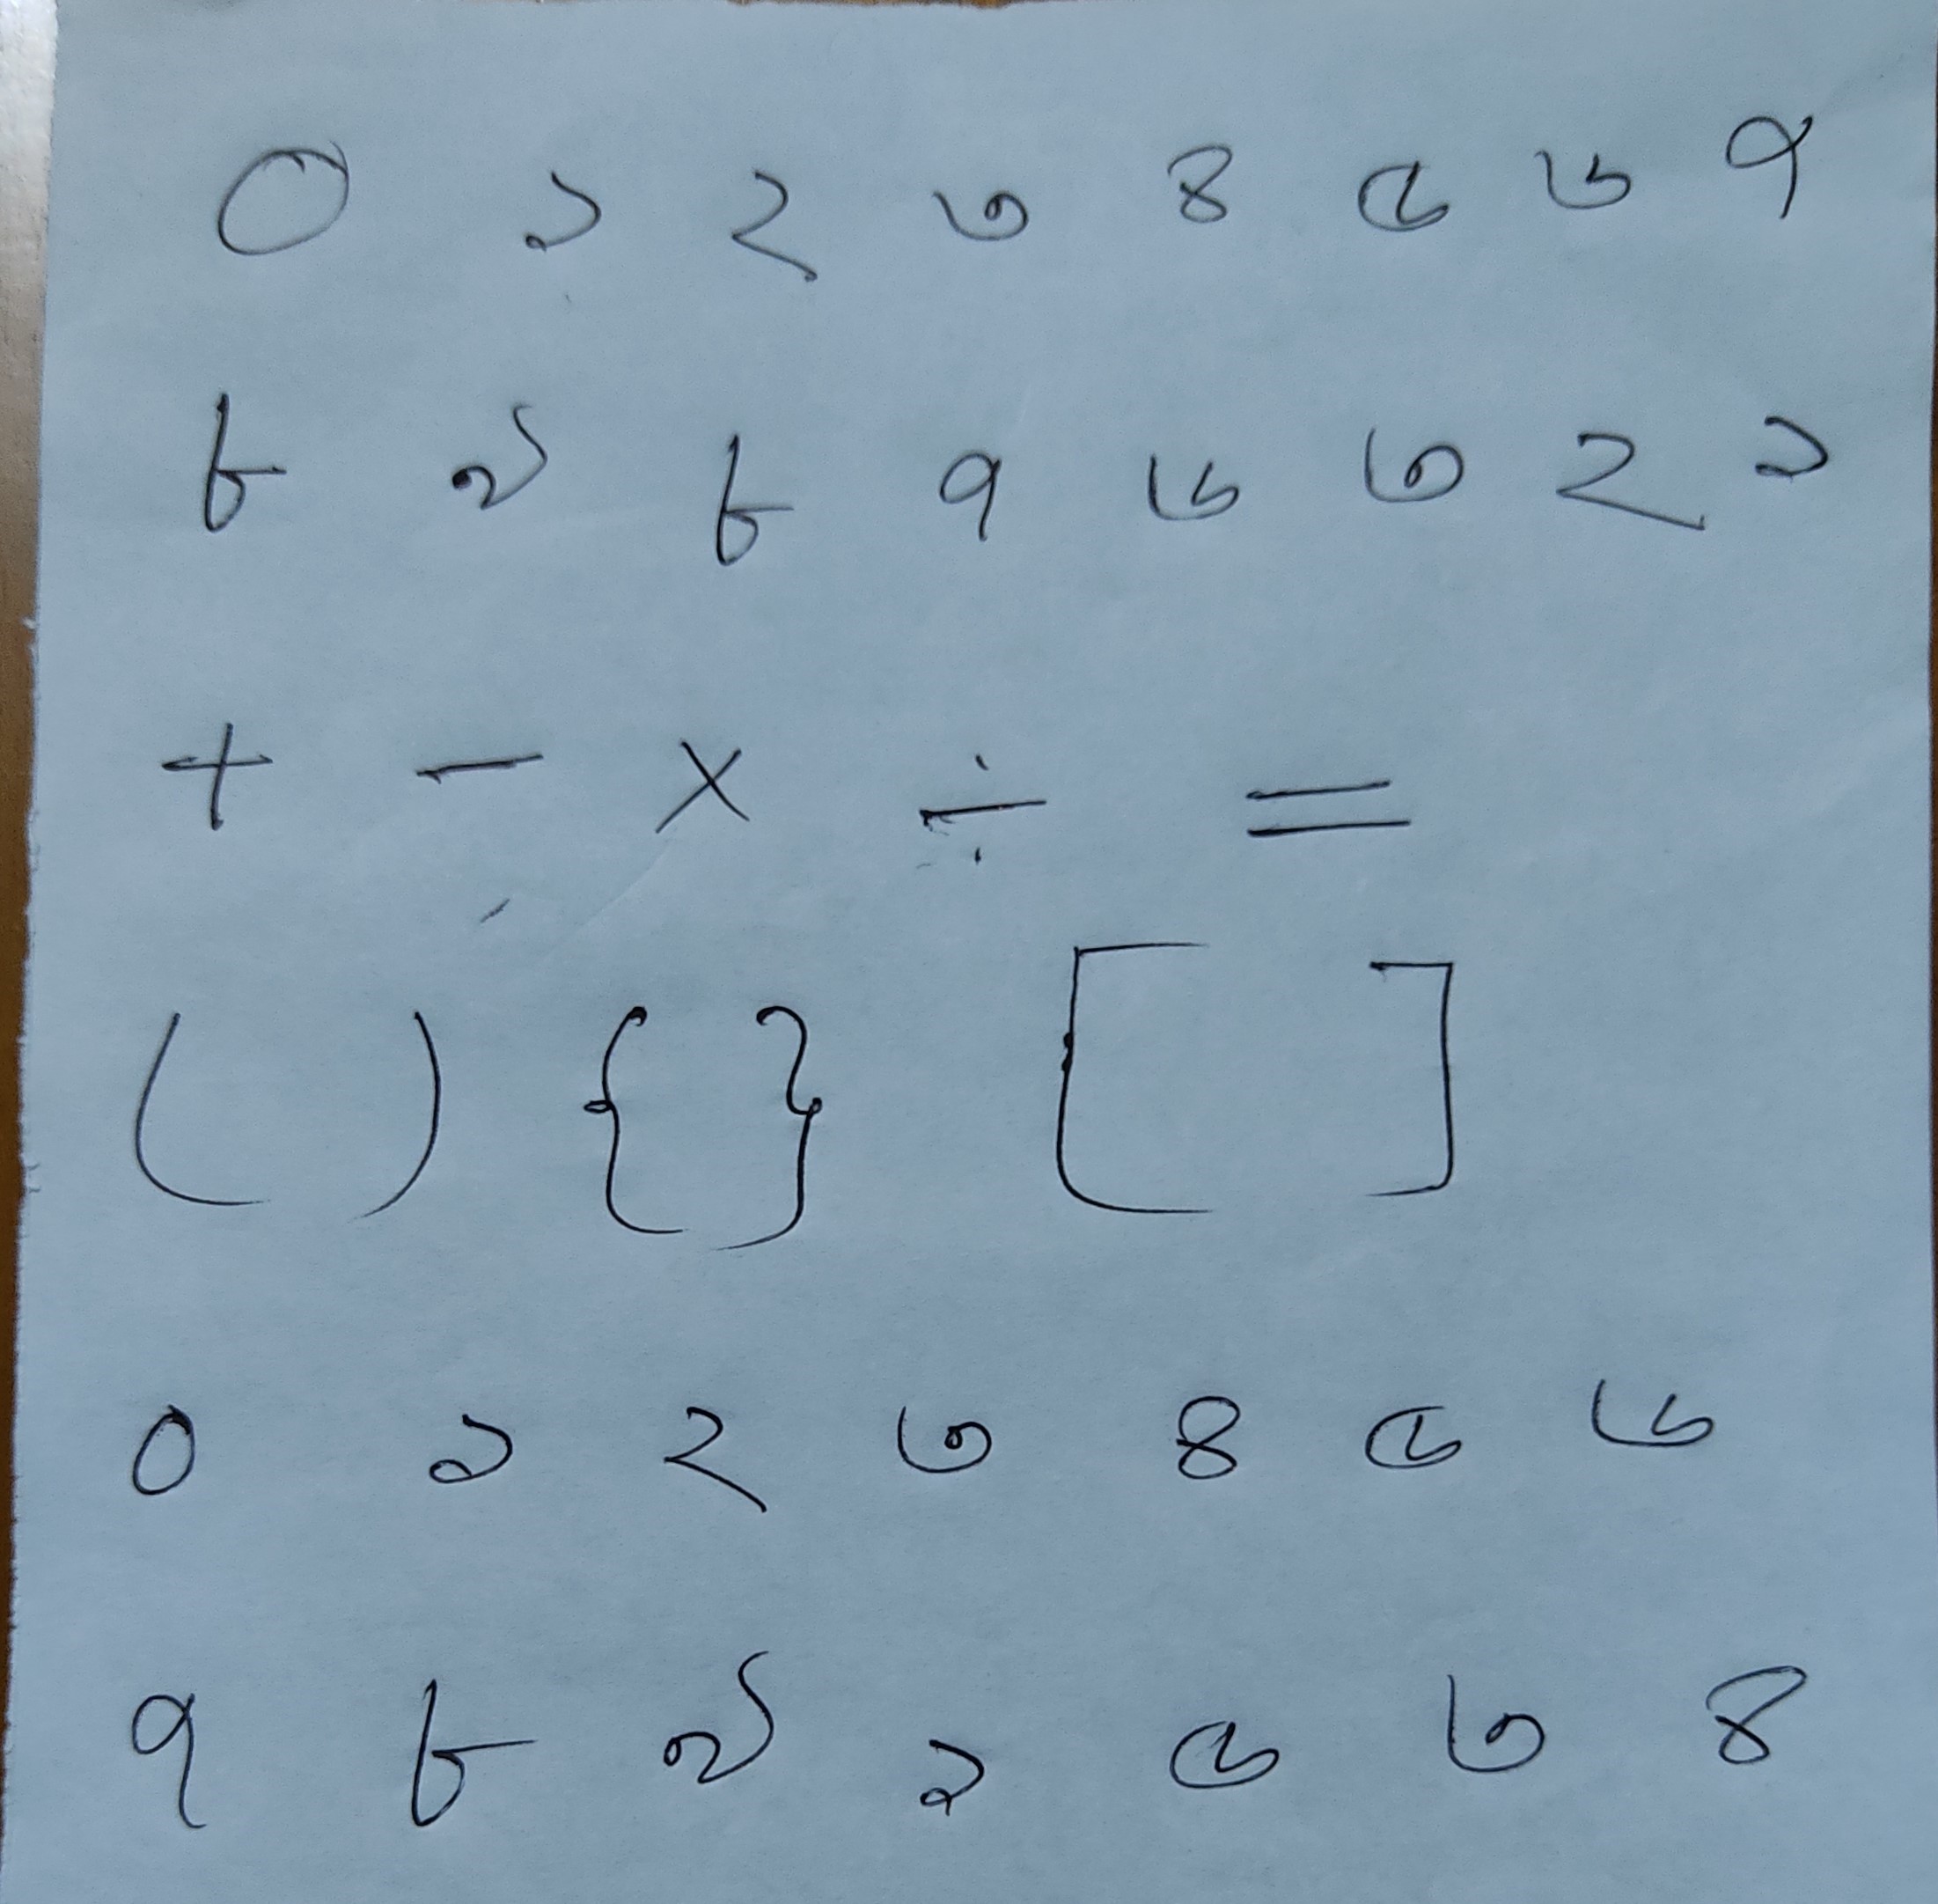 ০ ১ ২ ৩ ৪ ৫ ৬ ৭
৮ ৯ ৮ ৭ ৬ ৩ ২ ১
+ - × ÷ =
( ) { } [ ]
০ ১ ২ ৩ ৪ ৫ ৬
৭ ৮ ৯ ১ ৫ ৩ ৪